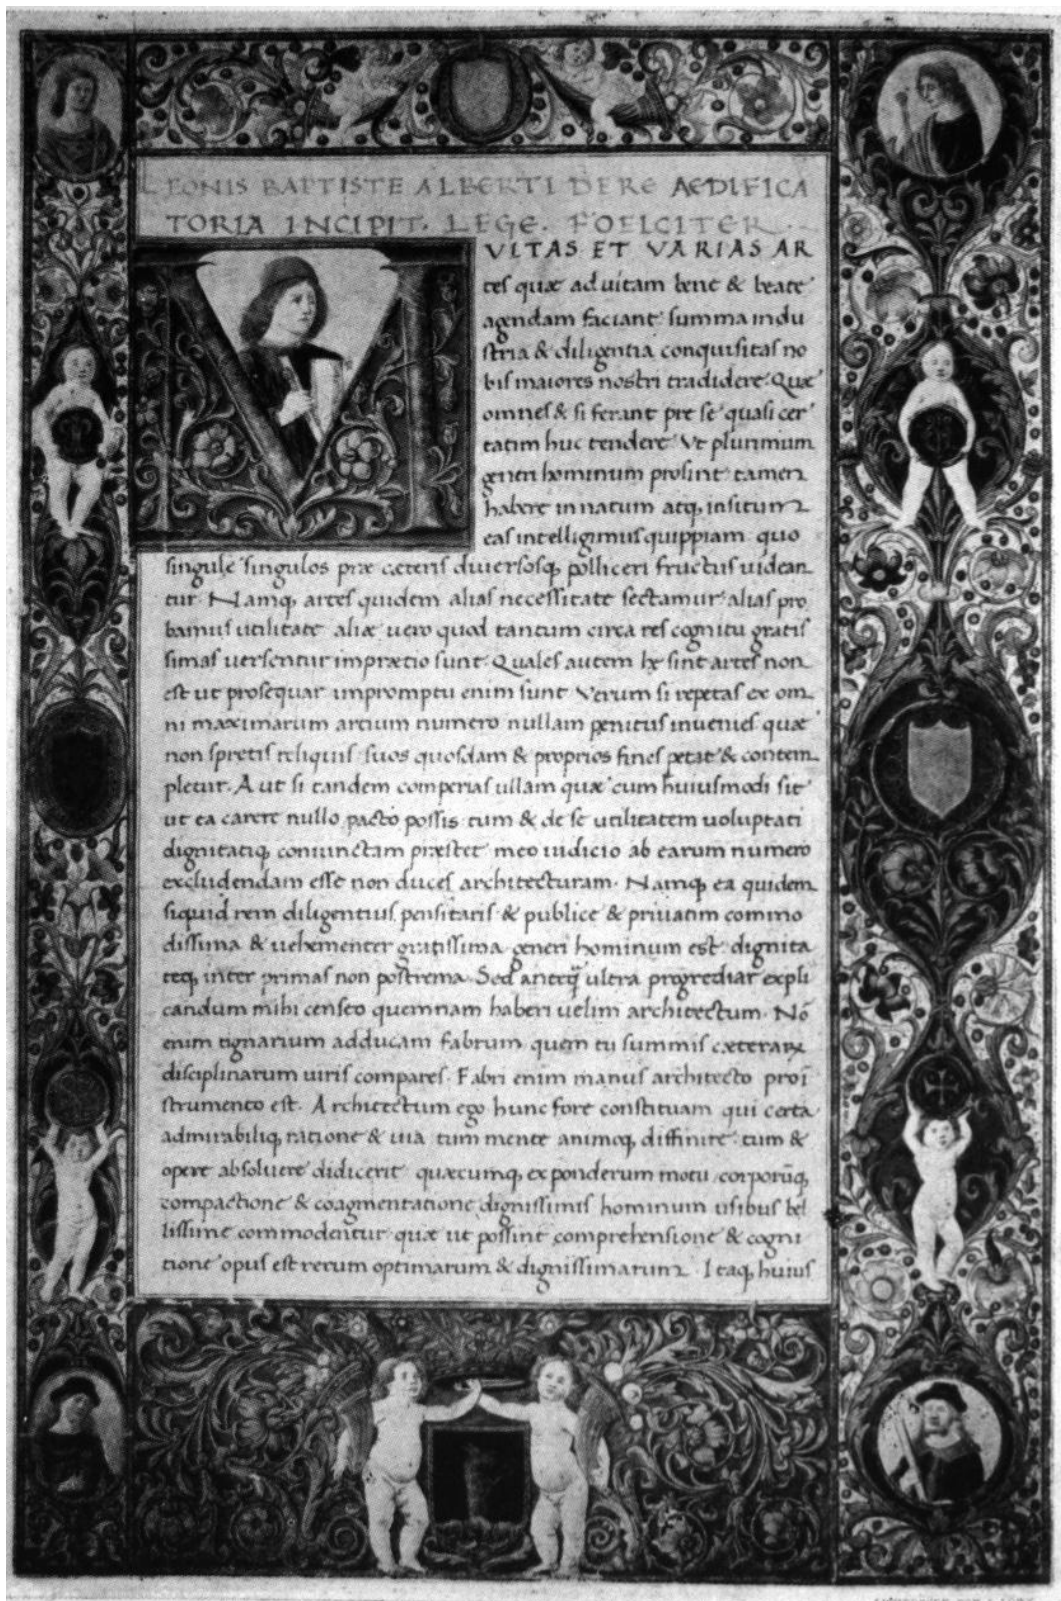 LEONIS BAPTISTE ALBERTI DE RE AEDIFICA
TORIA INCIPIT. LEGE. FOELCITER
M VLTAS ET VARIAS AR
tes quæ ad uitam bene & beate
agendam faciant summa indu
stria & diligentia conquisitas no
bis maiores nostri tradidere. Quæ
omnes & si ferant pre se quasi cer
tatim huc tendere Vt plurimum
generi hominum prosint tamen
habere innatum atq; insitum
eas intelligimus quippiam quo
singule singulos præ cæteris diuersosq; polliceri fructus uidean
tur. Namq; artes quidem alias necessitate sectamur alias pro
bamus utilitate aliæ uero quod tantum circa res cognitu gratis
simas uersentur impræcio sunt. Quales autem hę sint artes non
est ut prosequar impromptu enim sunt Verum si repetas ex om
ni maximarum artium numero nullam penitus inuenies quæ
non spretis reliquis suos quosdam & proprios fines petat & contem
pletur. Aut si tandem comperias ullam quæ cum huiusmodi sit
ut ea carere nullo pacto possis tum & de se utilitatem uoluptati
dignitatiq; coniunctam præstet meo iudicio ab earum numero
excludendam esse non duces architecturam. Namq; ea quidem
siquid rem diligentius pensitaris & publice & priuatim commo
dissima & uehementer gratissima generi hominum est dignita
teq; inter primas non postrema. Sed anteq̃ ultra progrediar expli
candum mihi censeo quemnam haberi uelim architectum. Nõ
enim tignarium adducam fabrum quem tu summis cæterarꝝ
disciplinarum uiris compares. Fabri enim manus architecto proĩ
strumento est. Architectum ego hunc fore constituam qui certa
admirabiliq; ratione & uia tum mente animoq; diffinire tum &
opere absoluere didicerit quæcumq; ex ponderum motu corporũq;
compactione & coagmentatione dignissimis hominum usibus bel
lissime commodentur quæ ut possint comprehensione & cogni
tione opus est rerum optimarum & dignissimarum. Itaq; huius